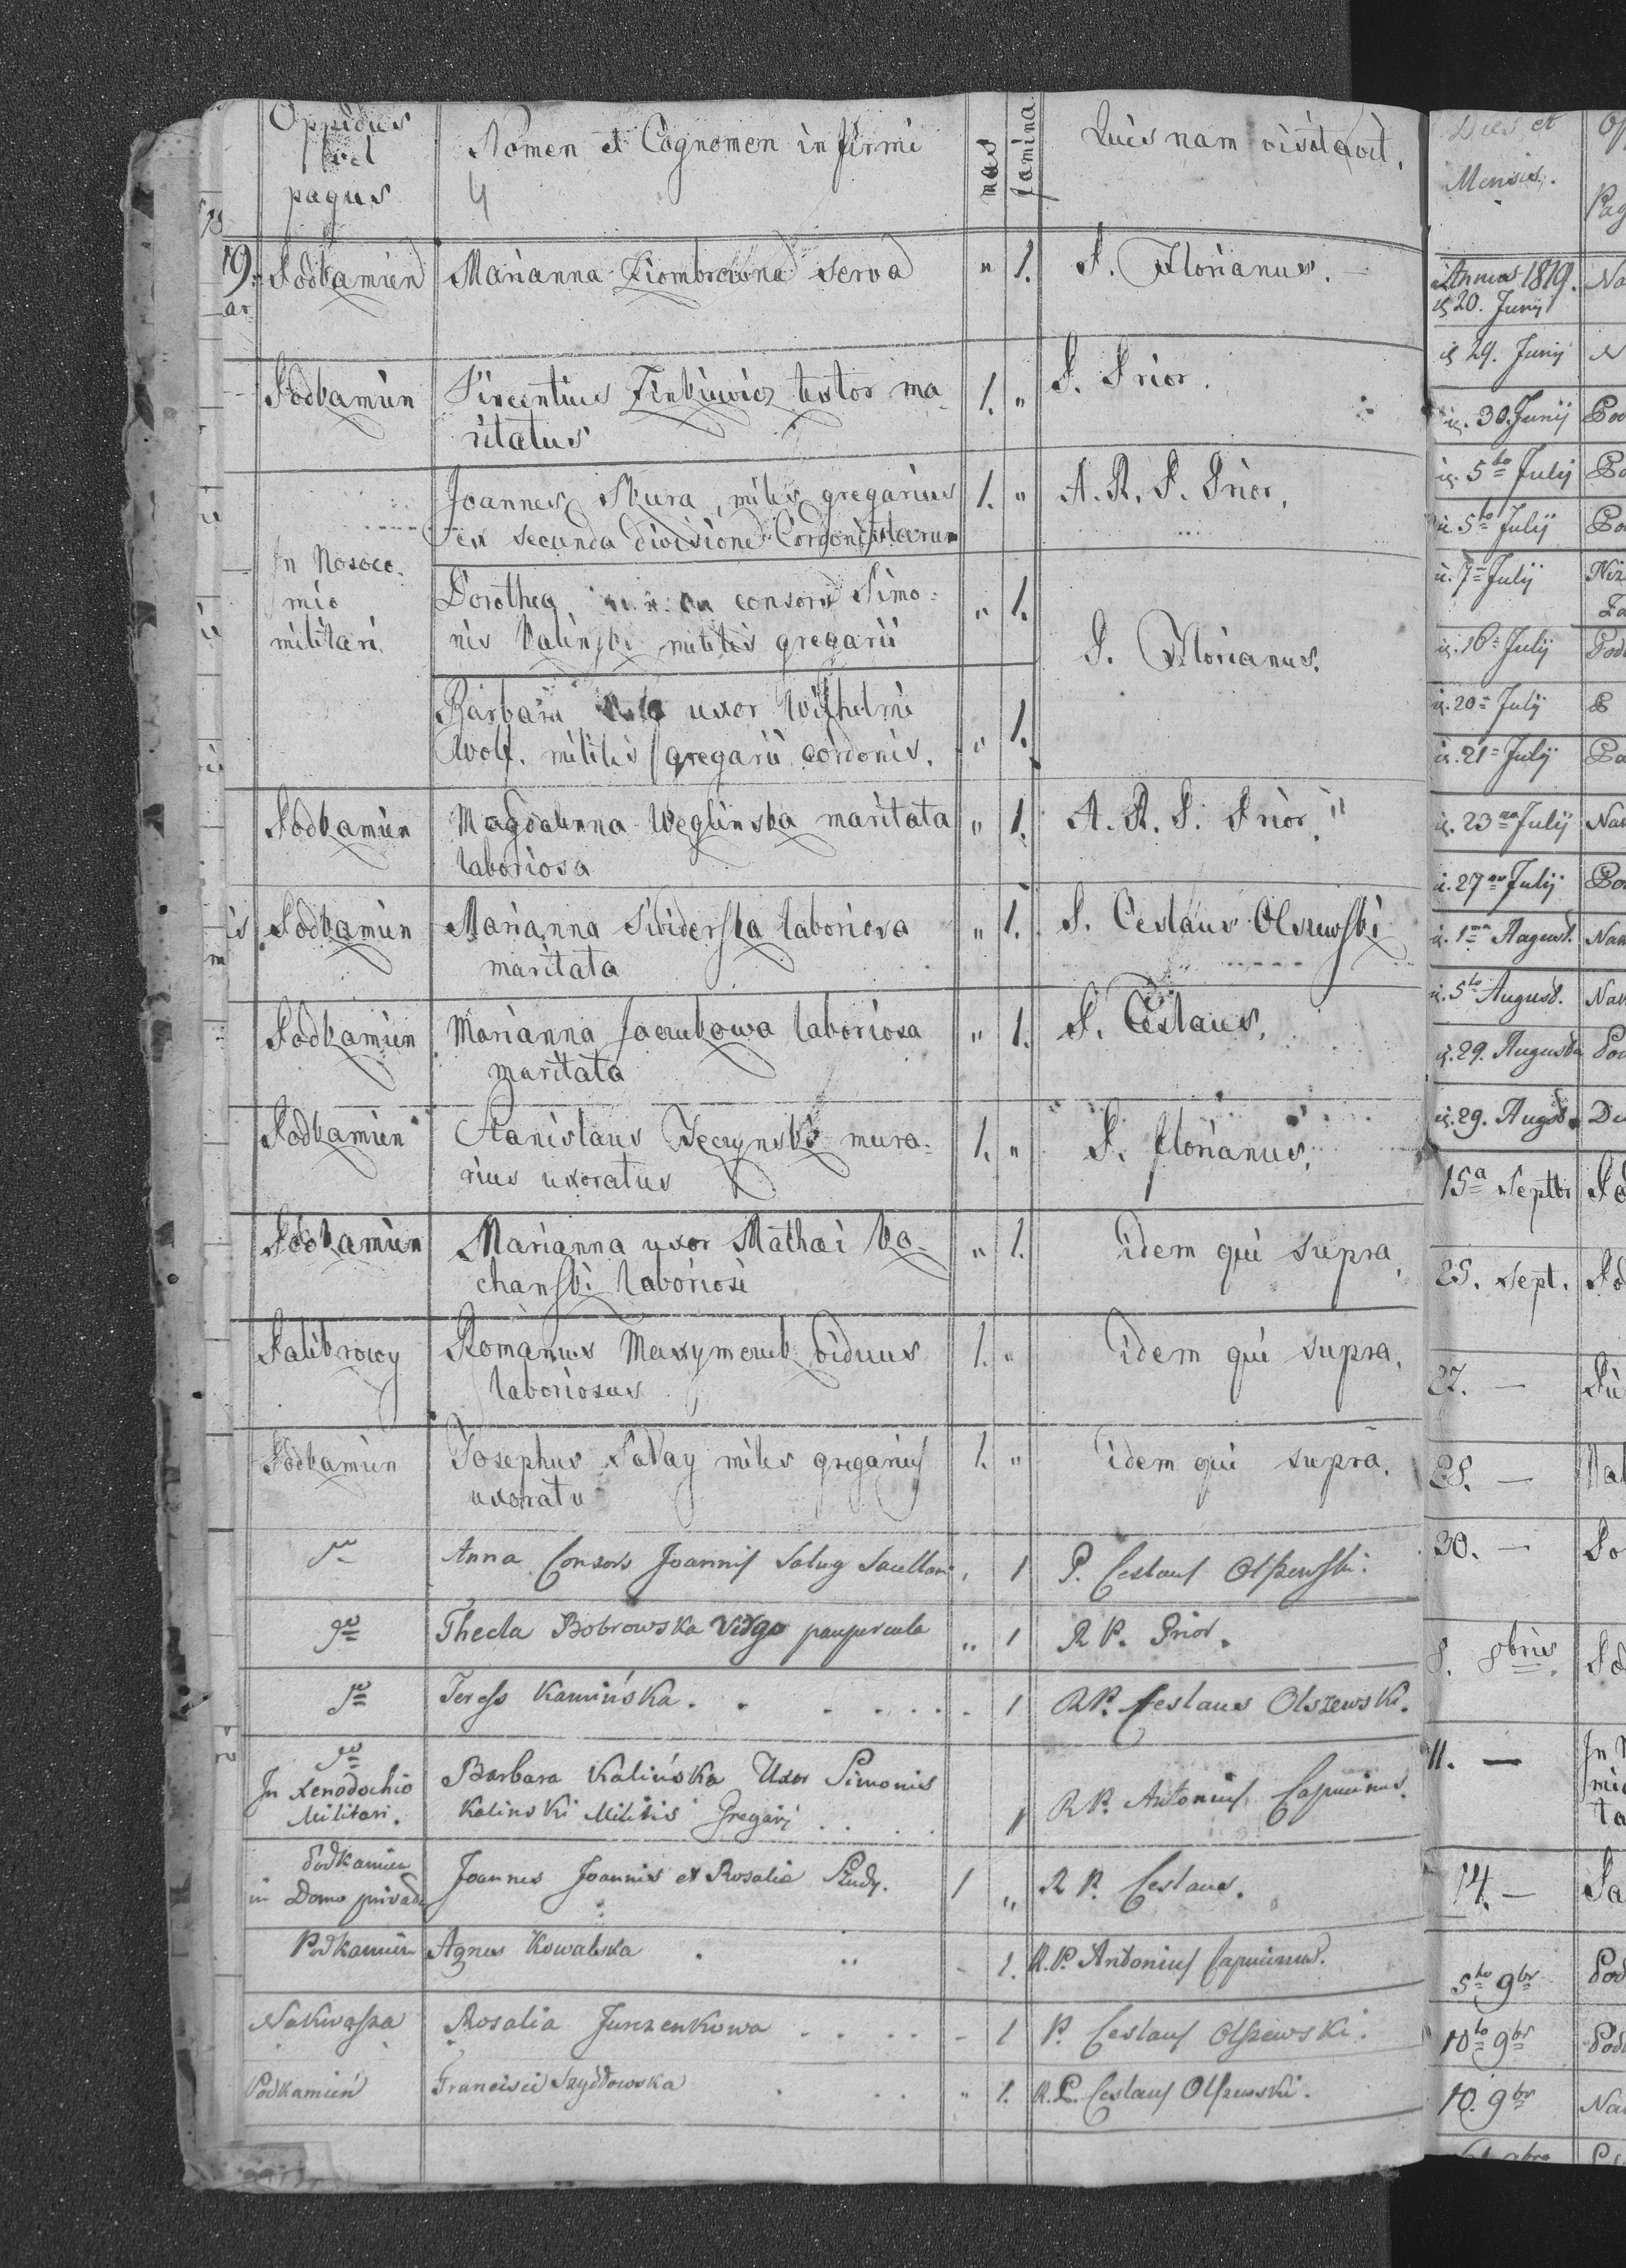 Oppidus
vel
pagus
Nomen et Cognomen infirmi
mas
famina
Quis nam visitavit.
Podkamien
Marianna Ziombrowna serva
" 1.
P. Florianus.
Podkamien
Vincentius Zinkiewicz textor ma
ritatus
1. "
P. Prior.
In Nosoco
mio
militari
Joannes Skura, miles gregarius
ex secunda divisione Cordonistarum
1. "
A. R. P. Prior.
Dorothea consors Simo
nis Kalinski militis gregarii
" 1.
P. Florianus.
Barbara uxor Wilhelmi
Wolf. militis gregarii cordonis.
" 1.
Podkamien
Magdalenna Węglinska maritata
laboriosa
" 1.
A. R. P. Prior.
Podkamien
Marianna Swiderska laboriosa
maritata
" 1.
P. Ceslaus Olszewski
Podkamien
Marianna Jacrubowa laboriosa
maritata
" 1.
P. Ceslaus.
Podkamien
Stanislaus Teczynski mura
rius uxoratus
1. "
P. florianus.
Podkamien
Marianna uxor Mathæi Ka
chanski laboriosi
" 1.
idem qui supra.
Palikrowy
Romanus Maxymczuk viduus
laboriosus
1. "
idem qui supra.
Podkamien
Josephus Saday miles gregarius
uxoratu
1. "
idem qui supra.
Anna Consors Joannis
1
P. Ceslaus Olszewski.
Thecla Bobrowska Virgo paupercula
" 1
R P. Prior.
Teress Kamińska.
1
R P. Ceslaus Olszewski.
In Xenodochio
Militari.
Barbara Kalińska Uxor Simonis
Kalinski Militis Gregarj
1
R P. Antonius Capucinus.
Podkamien
in Domo privata
Joannes Joannis et Rosalia
1 "
R P. Ceslaus.
Podkamien
Agnes Kowalska
- 1.
R. P. Antonius Capucinus.
Nakwasza
Rosalia Junzenkowa
- 1
P. Ceslaus Olszewski.
Podkamień
Francisci Szydłowska
" 1.
R. P. Ceslaus Olszewski.
Dies et
Mensis.
Pag
Annus 1819.
d. 20. Junij
d. 29. Junij
d. 30. Junij
d. 5to July
d. 5to July
d. 7a July
d. 16a July
d. 20a July
d. 21a July
d. 23 July
d. 27 July
d. 1ma August.
d. 5to August.
d. 29. Augusta
d. 29. August.
15a Septbr
25. Sept.
27. —
28. —
30. —
8. 8bris
11. —
14. —
5to 9br
10to 9br
10. 9br